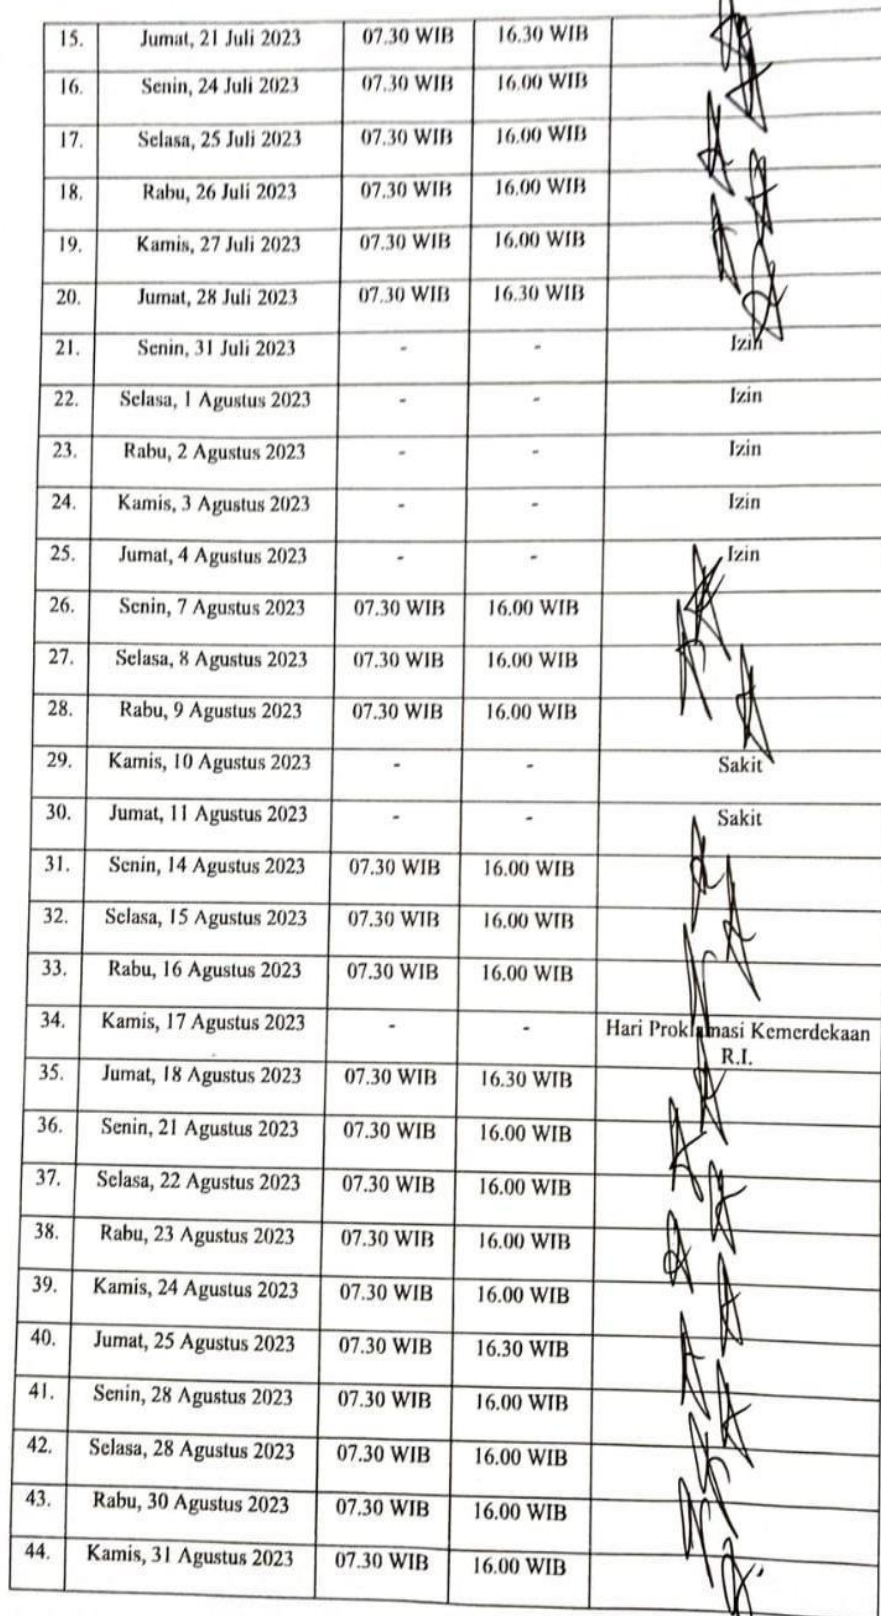 15. Jumat, 21 Juli 2023 07.30 WIB 16.30 WIB
16. Senin, 24 Juli 2023 07.30 WIB 16.00 WIB
17. Selasa, 25 Juli 2023 07.30 WIB 16.00 WIB
18. Rabu, 26 Juli 2023 07.30 WIB 16.00 WIB
19. Kamis, 27 Juli 2023 07.30 WIB 16.00 WIB
20. Jumat, 28 Juli 2023 07.30 WIB 16.30 WIB
21. Senin, 31 Juli 2023 - - Izin
22. Selasa, 1 Agustus 2023 - - Izin
23. Rabu, 2 Agustus 2023 - - Izin
24. Kamis, 3 Agustus 2023 - - Izin
25. Jumat, 4 Agustus 2023 - - Izin
26. Senin, 7 Agustus 2023 07.30 WIB 16.00 WIB
27. Selasa, 8 Agustus 2023 07.30 WIB 16.00 WIB
28. Rabu, 9 Agustus 2023 07.30 WIB 16.00 WIB
29. Kamis, 10 Agustus 2023 - - Sakit
30. Jumat, 11 Agustus 2023 - - Sakit
31. Senin, 14 Agustus 2023 07.30 WIB 16.00 WIB
32. Selasa, 15 Agustus 2023 07.30 WIB 16.00 WIB
33. Rabu, 16 Agustus 2023 07.30 WIB 16.00 WIB
34. Kamis, 17 Agustus 2023 - - Hari Proklamasi Kemerdekaan
R.I.
35. Jumat, 18 Agustus 2023 07.30 WIB 16.30 WIB
36. Senin, 21 Agustus 2023 07.30 WIB 16.00 WIB
37. Selasa, 22 Agustus 2023 07.30 WIB 16.00 WIB
38. Rabu, 23 Agustus 2023 07.30 WIB 16.00 WIB
39. Kamis, 24 Agustus 2023 07.30 WIB 16.00 WIB
40. Jumat, 25 Agustus 2023 07.30 WIB 16.30 WIB
41. Senin, 28 Agustus 2023 07.30 WIB 16.00 WIB
42. Selasa, 28 Agustus 2023 07.30 WIB 16.00 WIB
43. Rabu, 30 Agustus 2023 07.30 WIB 16.00 WIB
44. Kamis, 31 Agustus 2023 07.30 WIB 16.00 WIB